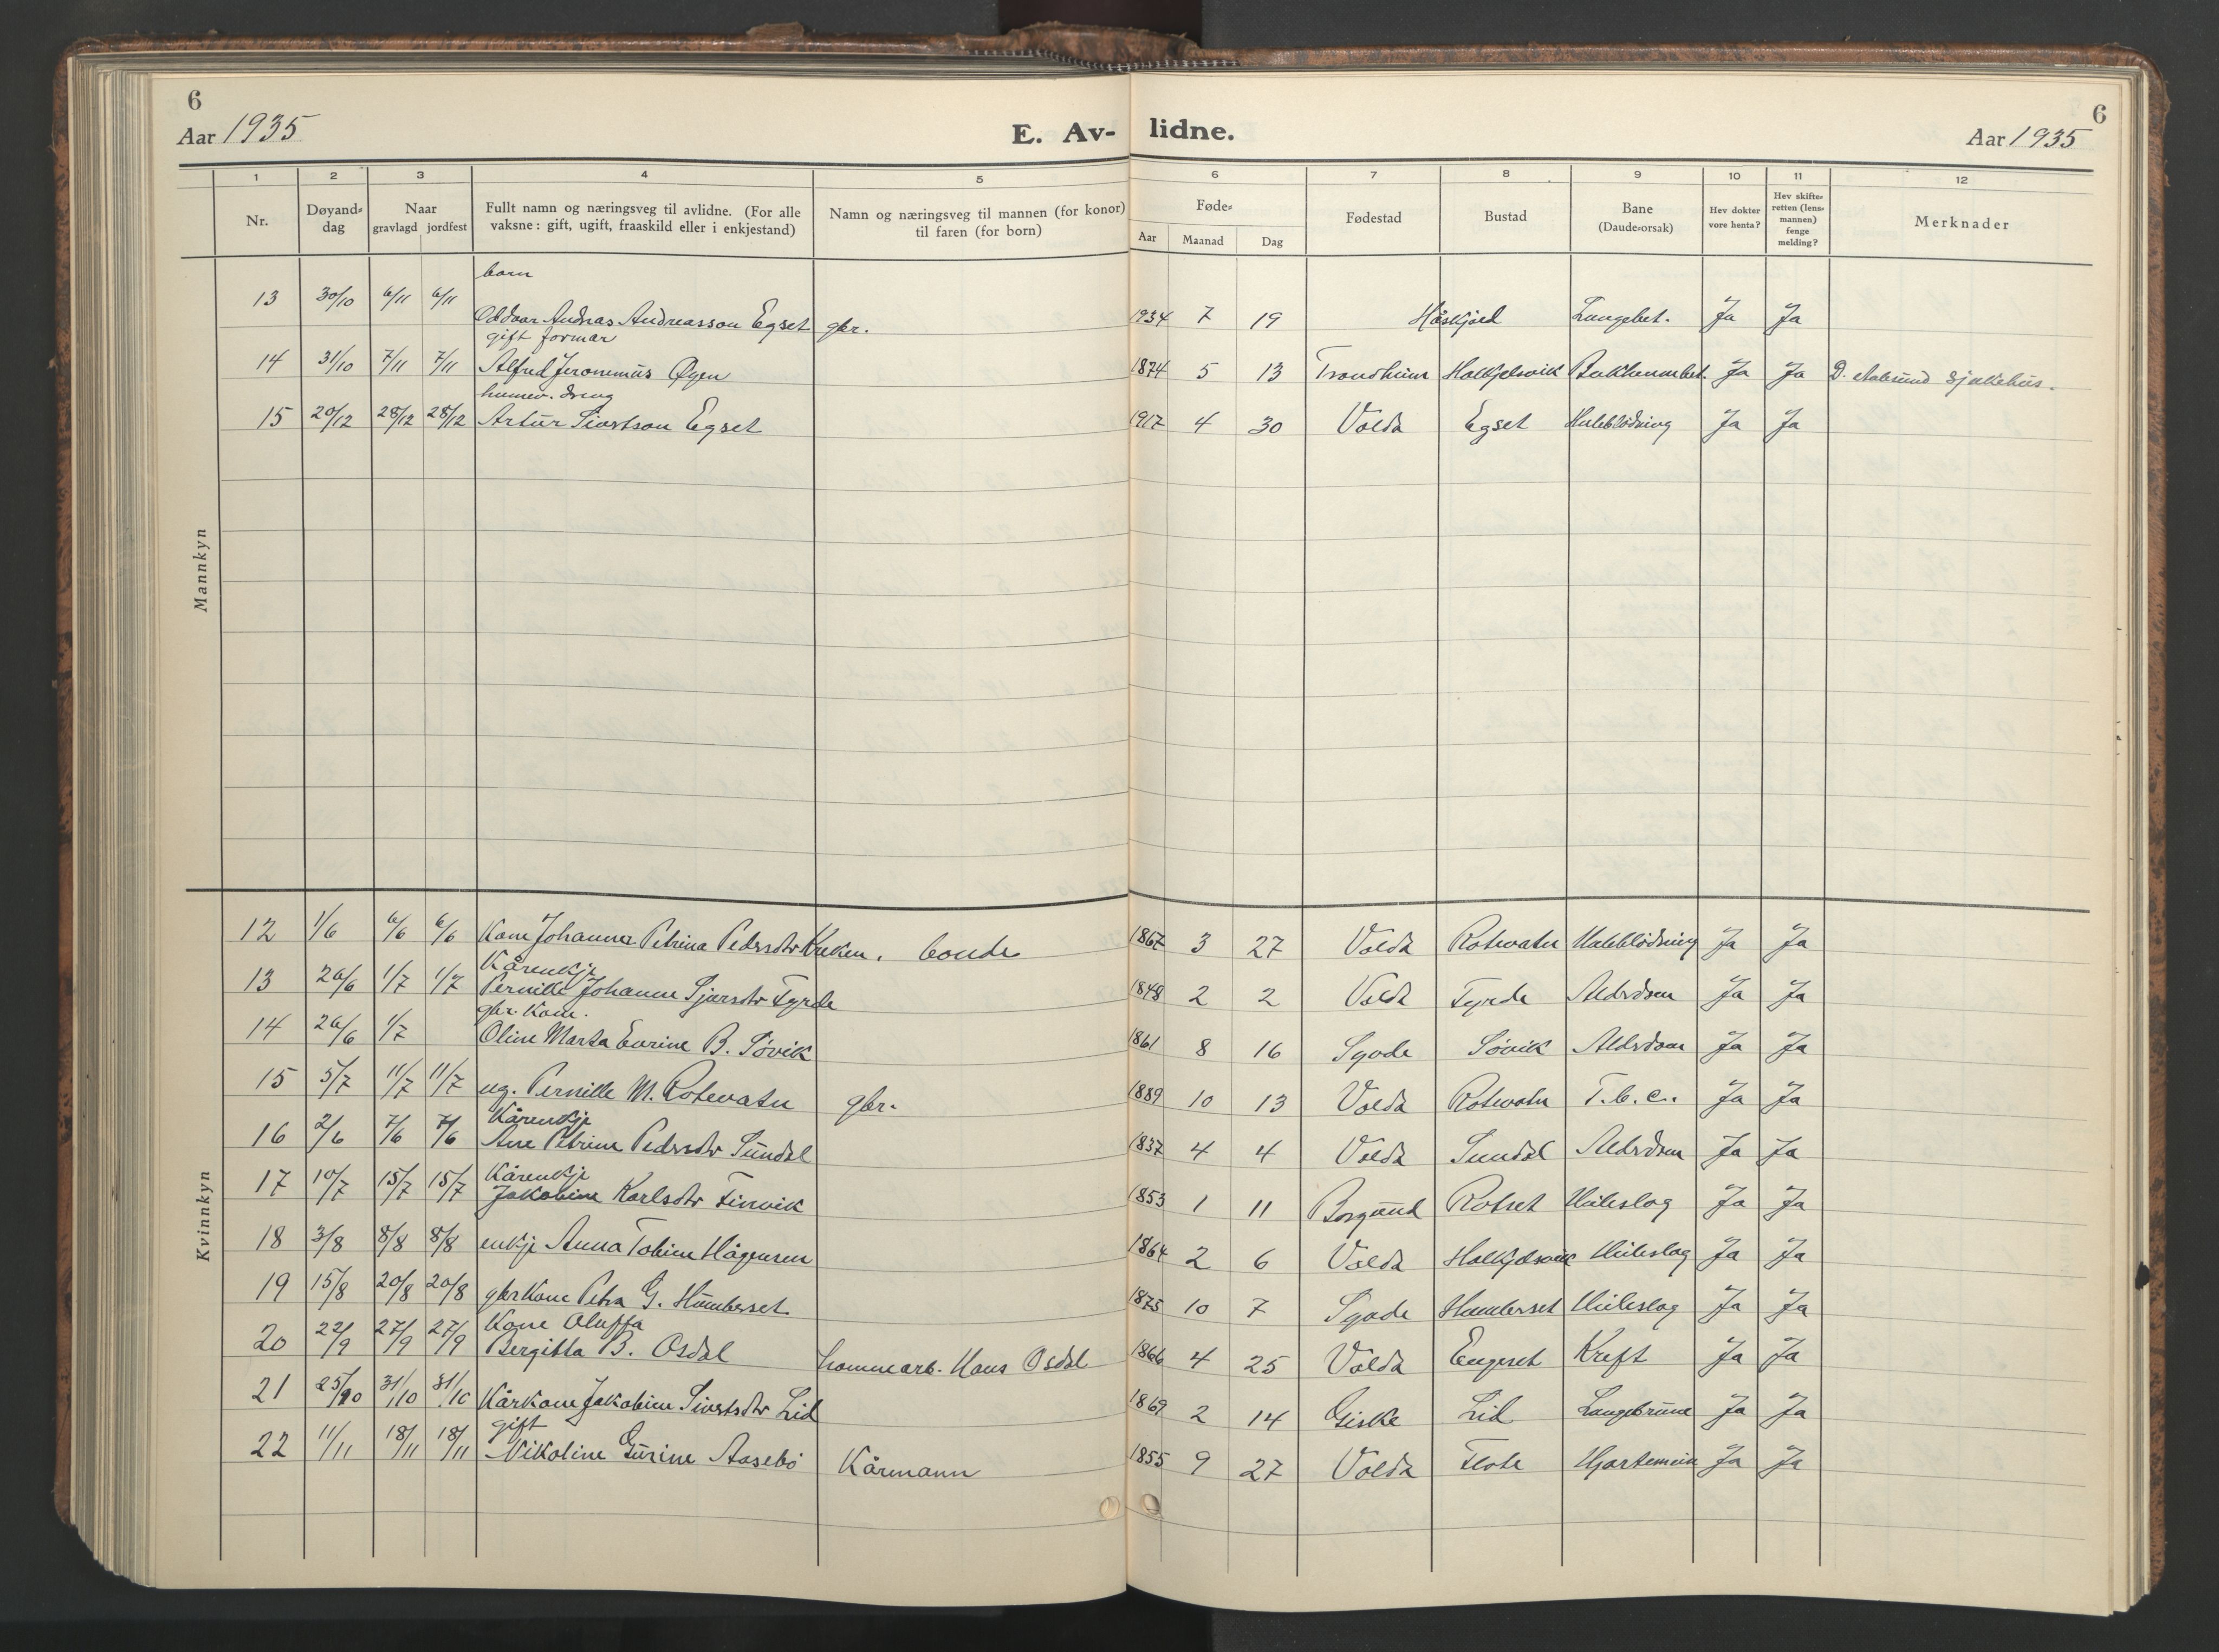 6
6
Aar 1935
E. Av- lidne.
Aar 1935
1 2 3 4 5 6 7 8 9 10 11 12
Nr.
Døyand-dag
Naar gravlagd jordfest
Fullt namn og næringsveg til avlidne. (For alle vaksne: gift, ugift, fraaskild eller i enkjestand)
Namn og næringsveg til mannen (for konor) til faren (for born)
Føde-
Aar Maanad Dag
Fødestad
Bustad
Bane (Daude-orsak)
Hev dokter vore henta?
Hev skifte-retten (lens-mannen) fenge melding?
Merknader
Mannkyn
born
13 30/10 6/11 6/11 Oddvar Andreas Andreasson Egset gbr. 1934 7 19 Håskjold Lungebet. Ja Ja
gift formar
14 31/10 7/11 7/11 Alfred Jeronimus Øyen 1874 5 13 Trondheim Halkjelsvik Bukhinnebet. Ja Ja D. Aalesund Sjukehus.
heimev. dreng
15 20/12 28/12 28/12 Artur Sivertson Egset 1917 4 30 Volda Egset Heleblödning Ja Ja
Kvinnkyn
12 1/6 6/6 6/6 Kone Johanna Petrina Pedersdtr Kreken. bonde 1867 3 27 Volda Rotevatn Heleblödning Ja Ja
Kårenkje
13 26/6 1/7 1/7 Pernille Johanne Sjursdtr Fyrde 1848 2 2 Volda Fyrde Aldrdom Ja Ja
gbr. Kone.
14 26/6 1/7 Oline Marta Eurine B. Sövik 1861 8 16 Syvde Sövik Aldrdom Ja Ja
15 5/7 11/7 11/7 ug. Pernille M. Rotevatn gbr. 1889 10 13 Volda Rotevatn T.b.c. Ja Ja
Kårenkje
16 2/6 7/6 7/6 Ane Petrine Pedersdtr Sundal 1837 4 4 Volda Sundal Aldrdom Ja Ja
Kårenkje
17 10/7 15/7 15/7 Jakobine Karlsdtr Finvik 1853 1 11 Borgund Rotset Heileslag Ja Ja
18 3/8 8/8 8/8 enkje Anna Tobine Hågensen 1864 2 6 Volda Halkjelsvik Heileslag Ja Ja
19 15/8 20/8 20/8 gbrkone Petra G. Humberset 1875 10 7 Syvde Humberset Heileslag Ja Ja
Kone Oluffa
20 22/9 27/9 27/9 Bergitta B. Osdal heimearb. Hans Osdal 1866 4 25 Volda Engeset Kreft Ja Ja
21 25/10 31/10 31/10 Kårkone Jakobine Sivertsdtr Lid 1869 2 14 Giske Lid Lungebrune Ja Ja
gift
22 11/11 18/11 18/11 Nikoline Gurine Aasebö Kårmann 1855 9 27 Volda Flote Hjartemein Ja Ja